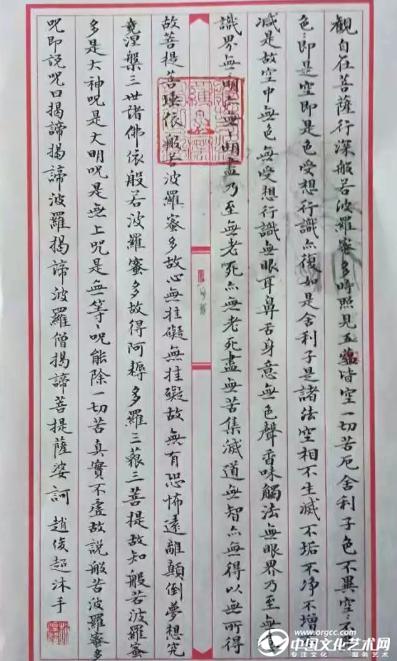 観自在菩薩行深般若波羅蜜多時照見五蘊皆空一切苦厄舍利子色不異空〻不
色〻即是空即是色受想行識亦復如是舍利子是諸法空相不生滅不垢不净不增
减是故空中無色無受想行識無眼耳鼻舌身意無色聲香味觸法無眼界乃至無意
識界無〻明亦無〻明盡乃至無老死亦無老死盡無苦集滅道無智亦無得以無所得
故菩提薩埵依般若波羅蜜多故心無挂礙無挂礙故無有恐怖遠離顛倒夢想究
竟涅槃三世諸佛依般若波羅蜜多故得阿耨多羅三藐三菩提故知般若波羅蜜
多是大神咒是大明咒是無上咒是無等〻咒能除一切苦真實不虛故説般若波羅蜜多
咒即説咒曰揭諦揭諦波羅揭諦波羅僧揭諦菩提薩婆訶 趙俊超沐手
www.orgcc.com
中国文化艺术网
专注文化 服务艺术